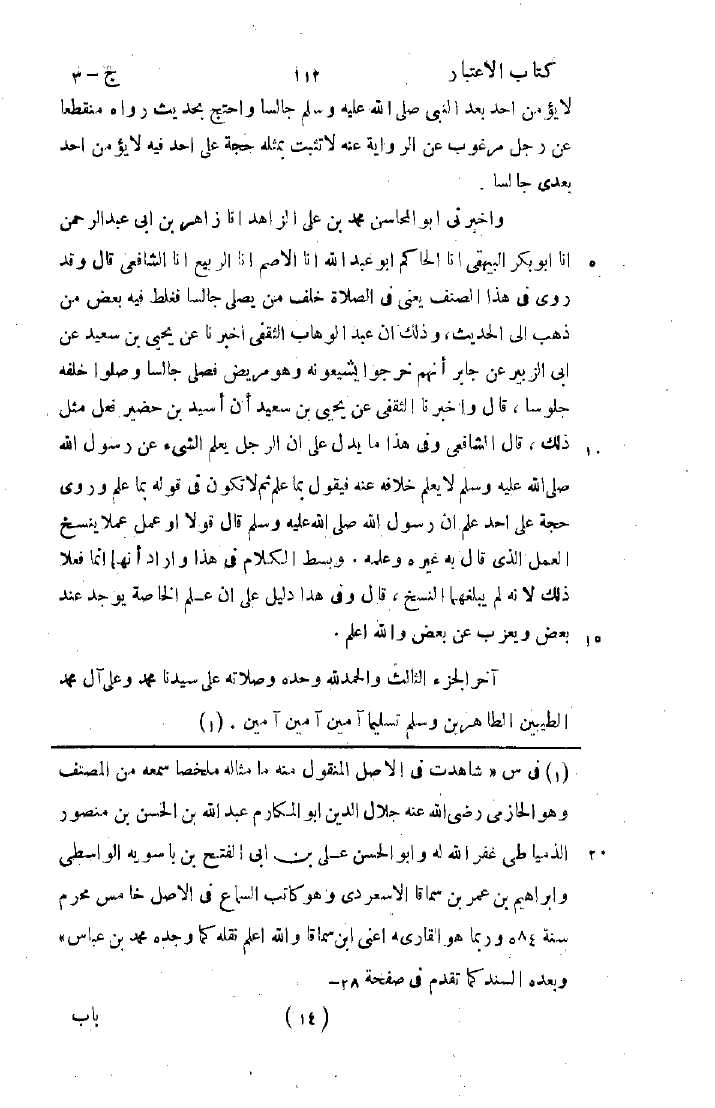 كتاب الاعتبار ١١٢ ج-٣
لايؤمن احد بعد النبى صلى الله عليه وسلم جالسا واحتج بحديث رواه منقطعا
عن رجل مرغوب عن الرواية عنه لاتثبت بمثله حجة على احد فيه لايؤمن احد
بعدى جالسا .
واخبرنى ابو المحاسن محمد بن على الزاهد انا زاهر بن ابى عبدالرحمن
٥ انا ابو بكر البيهقى انا الحاكم ابو عبد الله انا الاصم انا الربيع انا الشافعى قال وقد
روى فى هذا الصنف يعنى فى الصلاة خلف من يصلى جالسا فغلط فيه بعض من
ذهب الى الحديث، وذلك ان عبد الوهاب الثقفى اخبرنا عن يحيى بن سعيد عن
ابى الزبير عن جابر أنهم خرجوا يشيعونه وهو مريض فصلى جالسا وصلوا خلفه
جلوسا، قال واخبرنا الثقفى عن يحيى بن سعيد أن أسيد بن حضير فعل مثل
١٠ ذلك، قال الشافعى وفى هذا ما يدل على ان الرجل يعلم الشىء عن رسول الله
صلى الله عليه وسلم لايعلم خلافه عنه فيقول بما علم ثم لاتكون فى قوله بما علم وروى
حجة على احد علم ان رسول الله صلى الله عليه وسلم قال قولا او عمل عملا ينسخ
العمل الذى قال به غيره وعلمه . وبسط الكلام فى هذا واراد أنهما انما فعلا
ذلك لانه لم يبلغهما النسخ، قال وفى هذا دليل على ان علم الخاصة يوجد عند
١٥ بعض ويعزب عن بعض والله اعلم .
آخر الجزء الثالث والحمدلله وحده وصلاته على سيدنا محمد وعلى آل محمد
الطيبين الطاهرين وسلم تسليما آمين آمين آمين . (١)
(١) فى س «شاهدت فى الاصل المنقول منه ما مثاله ملخصا سمعه من المصنف
وهو الحازمى رضى الله عنه جلال الدين ابو المكارم عبد الله بن الحسن بن منصور
٢٠ الذمياطى غفر الله له وابو الحسن على بن ابى الفتح بن باسويه الواسطى
وابراهيم بن عمر بن سماقا الاسعردى وهو كاتب السماع فى الاصل خامس محرم
سنة ٥٨٤ وربما هو القارىء اعنى ابن سماقا والله اعلم نقله كما وجده محمد بن عباس»
وبعده السند كما تقدم فى صفحة ٢٨-
(١٤) باب